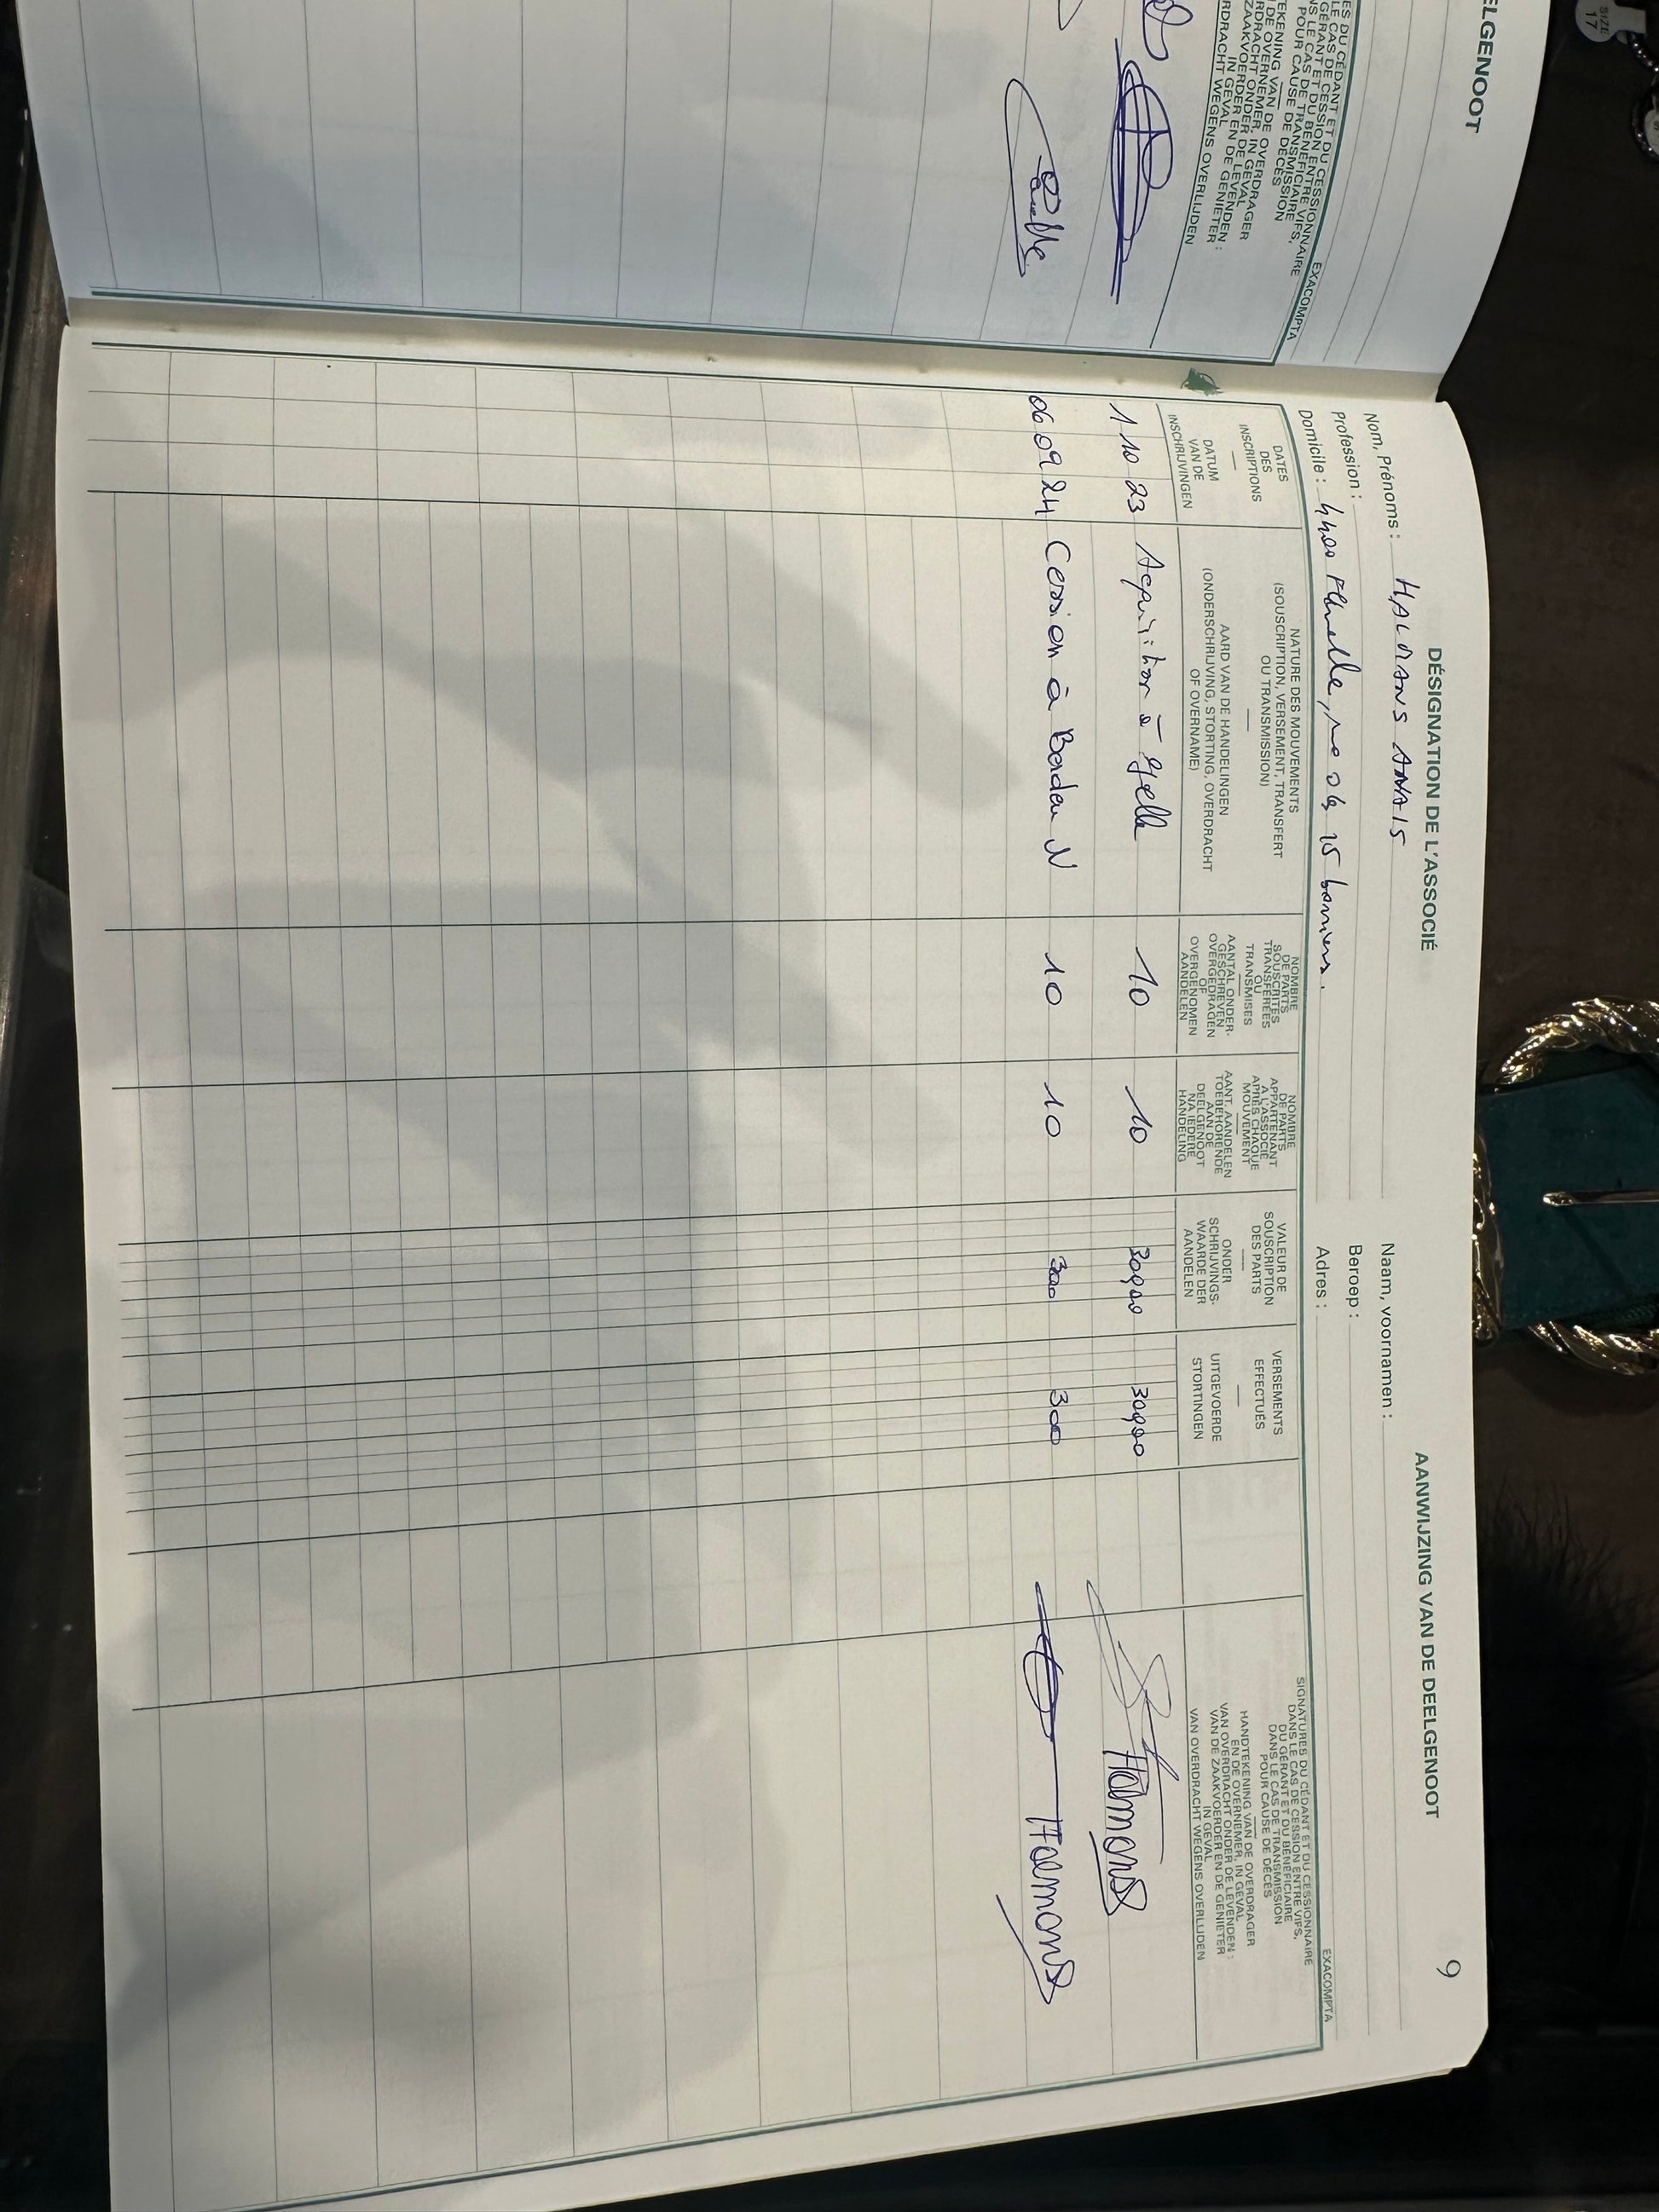 SIZE
17
ELGENOOT
EXACOMPTA
ES DU CÉDANT ET DU CESSIONNAIRE
LE CAS DE CESSION ENTRE VIFS,
GÉRANT ET DU BÉNÉFICIAIRE
NS LE CAS DE TRANSMISSION
POUR CAUSE DE DÉCÈS
TEKENING VAN DE OVERDRAGER
DE OVERNEMER, IN GEVAL
RDRACHT ONDER DE LEVENDEN :
ZAAKVOERDER EN DE GENIETER
IN GEVAL
RDRACHT WEGENS OVERLIJDEN
9
DÉSIGNATION DE L'ASSOCIÉ
AANWIJZING VAN DE DEELGENOOT
Nom, Prénoms : HALMANS ANAIS
Naam, voornamen :
Profession :
Beroep :
Domicile : 15
Adres :
EXACOMPTA
DATES
DES
INSCRIPTIONS
DATUM
VAN DE
INSCHRIJVINGEN
NATURE DES MOUVEMENTS
(SOUSCRIPTION, VERSEMENT, TRANSFERT
OU TRANSMISSION)
AARD VAN DE HANDELINGEN
(ONDERSCHRIJVING, STORTING, OVERDRACHT
OF OVERNAME)
NOMBRE
DE PARTS
SOUSCRITES
TRANSFÉRÉES
OU
TRANSMISES
AANTAL ONDER-
GESCHREVEN
OVERGEDRAGEN
OF
OVERGENOMEN
AANDELEN
NOMBRE
DE PARTS
APPARTENANT
A L'ASSOCIÉ
APRÈS CHAQUE
MOUVEMENT
AANT. AANDELEN
TOEBEHORENDE
AAN DE
DEELGENOOT
NA IEDERE
HANDELING
VALEUR DE
SOUSCRIPTION
DES PARTS
ONDER
SCHRIJVINGS-
WAARDE DER
AANDELEN
VERSEMENTS
EFFECTUÉS
UITGEVOERDE
STORTINGEN
SIGNATURES DU CÉDANT ET DU CESSIONNAIRE
DANS LE CAS DE CESSION ENTRE VIFS,
DU GÉRANT ET DU BÉNÉFICIAIRE
DANS LE CAS DE TRANSMISSION
POUR CAUSE DE DÉCÈS
HANDTEKENING VAN DE OVERDRAGER
EN DE OVERNEMER, IN GEVAL
VAN OVERDRACHT ONDER DE LEVENDEN :
VAN DE ZAAKVOERDER EN DE GENIETER
IN GEVAL
VAN OVERDRACHT WEGENS OVERLIJDEN
1 10 23 Acquisition à 10 10 300,00 300,00 Halmans
06 09 24 Cession à N 10 10 300 300 Halmans